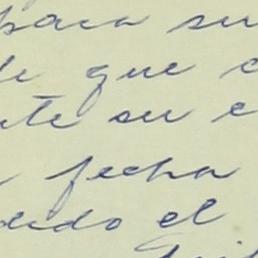 para su
de que
te su
fecha
dido el